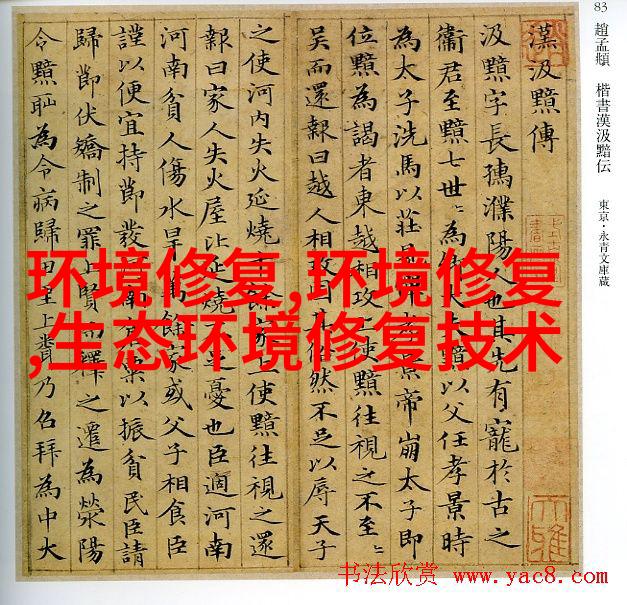 83
趙孟頫 楷書漢汲黯伝
東京・永青文庫蔵
漢汲黯傳
汲黯字長孺濮陽人也其先有寵於古之
衛君至黯七世〻為卿大夫黯以父任孝景時
為太子洗馬以莊孝景帝崩太子即
位黯為謁者東越相攻上使黯往視之不至〻
吳而還報曰越人相攻然不足以辱天子
之使河内失火延燒千餘家上使黯往視之還
報曰家人失火屋比延燒憂也臣適河南
河南貧人傷水旱萬餘家或父子相食臣
謹以便宜持節發河南倉粟以振貧民臣請
歸節伏矯制之罪上賢而釋之遷為滎陽
令黯恥為令病歸田里上乃召拜為中大
环境修复,环境修复
,生态环境修复技术
书法欣赏 www.yac8.com